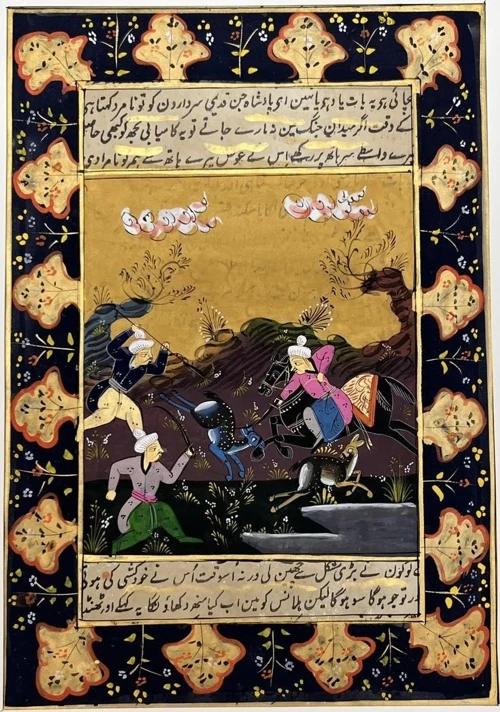 جاتی ہو یہ بات یاد ہو یا سین ای بادشاہ جن قدیمی سردارون کو تو نامرد کہتا ہی
کے وقت اگر میدان جنگ مین نہ مارے جاتے تو یہ کامیابی تجھ کو کبھی حاصل
میرے واسطے سر ہاتھ پر رکھے اس کے عوض میرے ہاتھ سے ہم و نامرادی
لوگون نے بڑی مشکل سے چھین لی ورنہ اسوقت اُس نے خودکشی کی ہوتی
تو جو ہوگا سو ہوگا لیکن کو مین اب کیا منھ دکھاؤنگا یہ کہکے اور ٹھنڈ